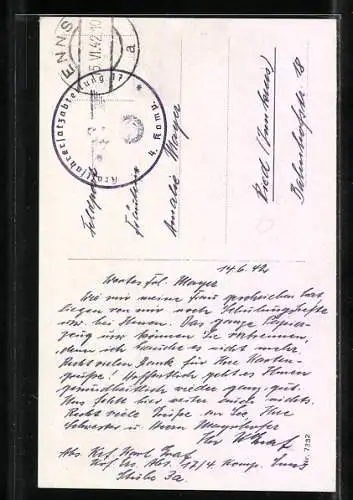 ENNS
5.VI.42.10
a
Kraftfahrersatzabteilung 17
4. Komp.
Feldpost
Fräulein
Amalie Mayer
Ried (Innkreis)
Bahnhofstr. 18
14.6.42
Wertes Frl. Mayer
Wie mir meine Frau geschrieben hat
liegen von mir noch Schulungshefte
usw. bei Ihnen. Das ganze Papier-
zeug usw können Sie verbrennen,
denn ich brauche es nicht mehr.
Recht vielen Dank für Ihre Karten-
grüße! Hoffentlich geht es Ihnen
gesundheitlich wieder ganz gut.
Uns fehlt hier weiter nichts.
Recht viele Grüße an Sie, Ihre
Schwester u. Herrn
Ihr
Abs. Krf. Karl
Krf. Ers. Abt. 17/4 Komp. Enns
Stube 3a.
Nr. 7332